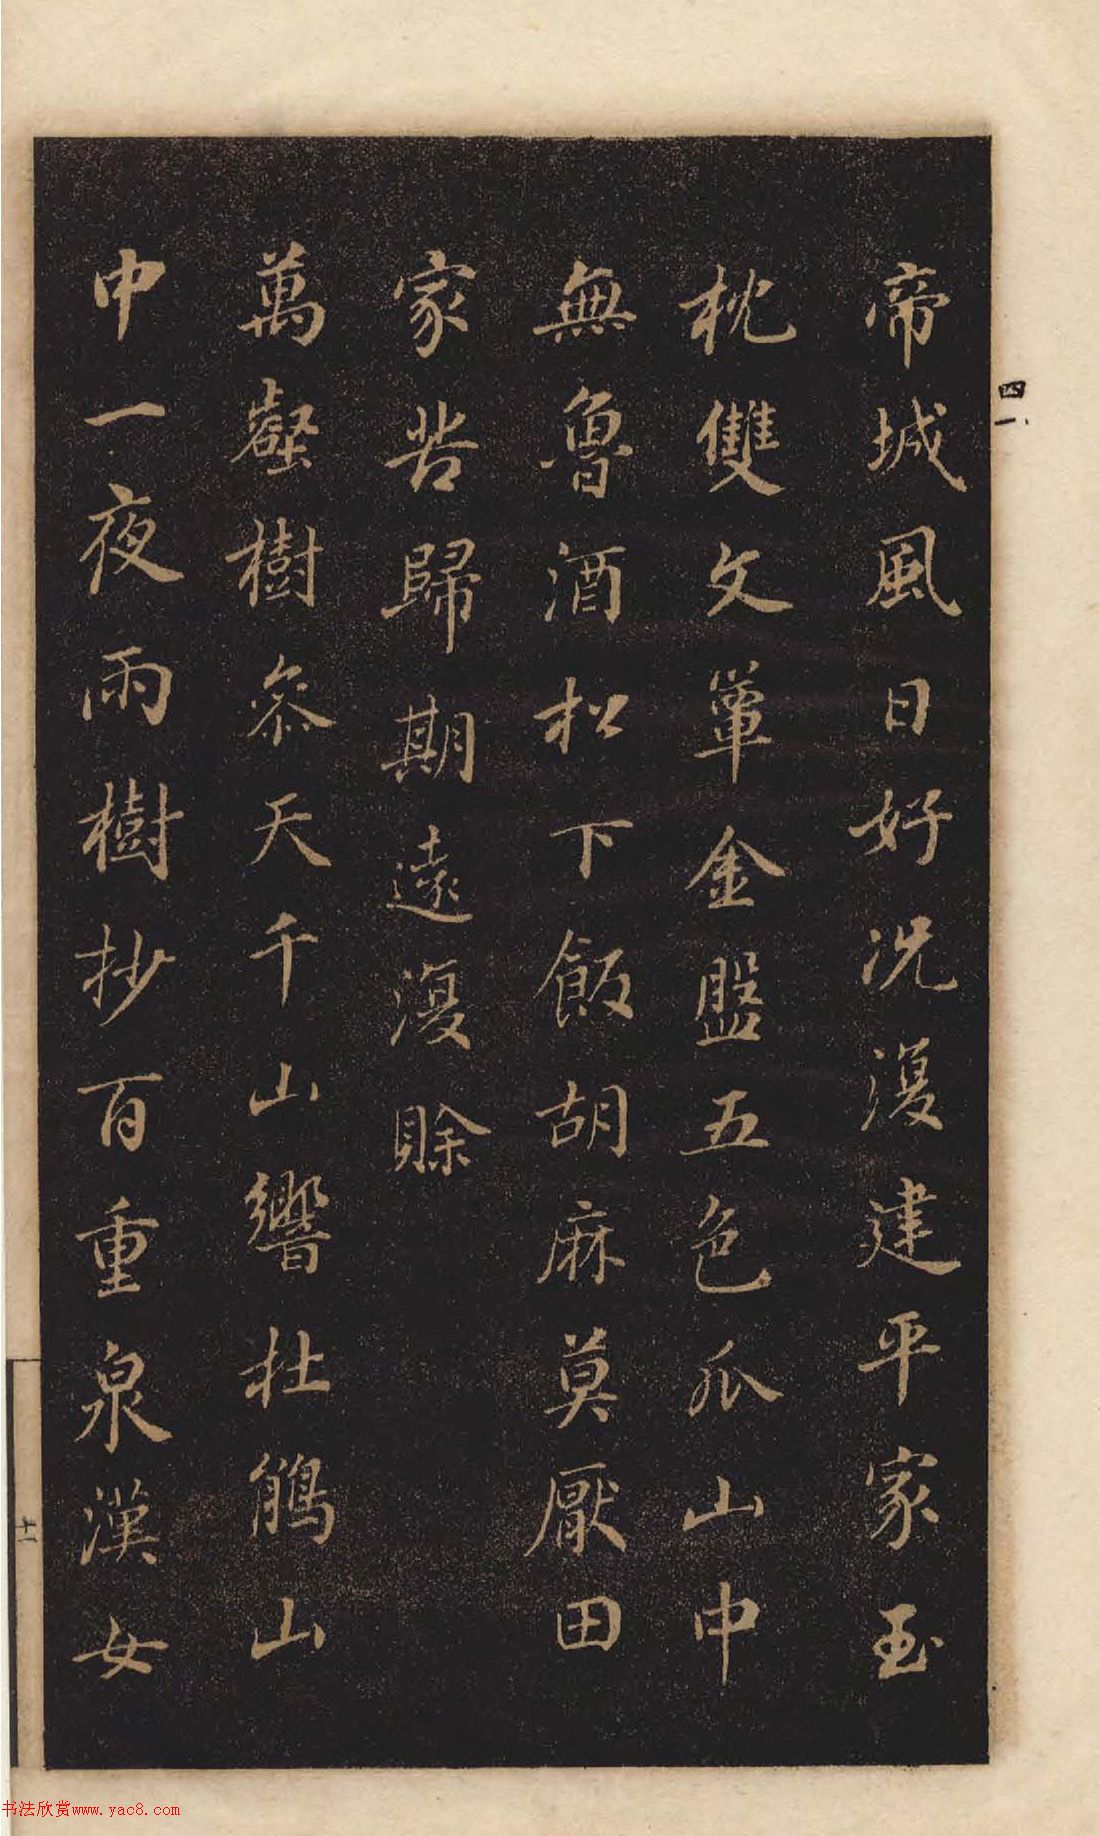 帝城風日好況復建平家玉
枕雙文簟金盤五色瓜山中
無魯酒松下飯胡麻莫厭田
家苦歸期遠復賒
萬壑樹參天千山響杜鵑山
中一夜雨樹杪百重泉漢女
四一
十一
书法欣赏www.yac8.com